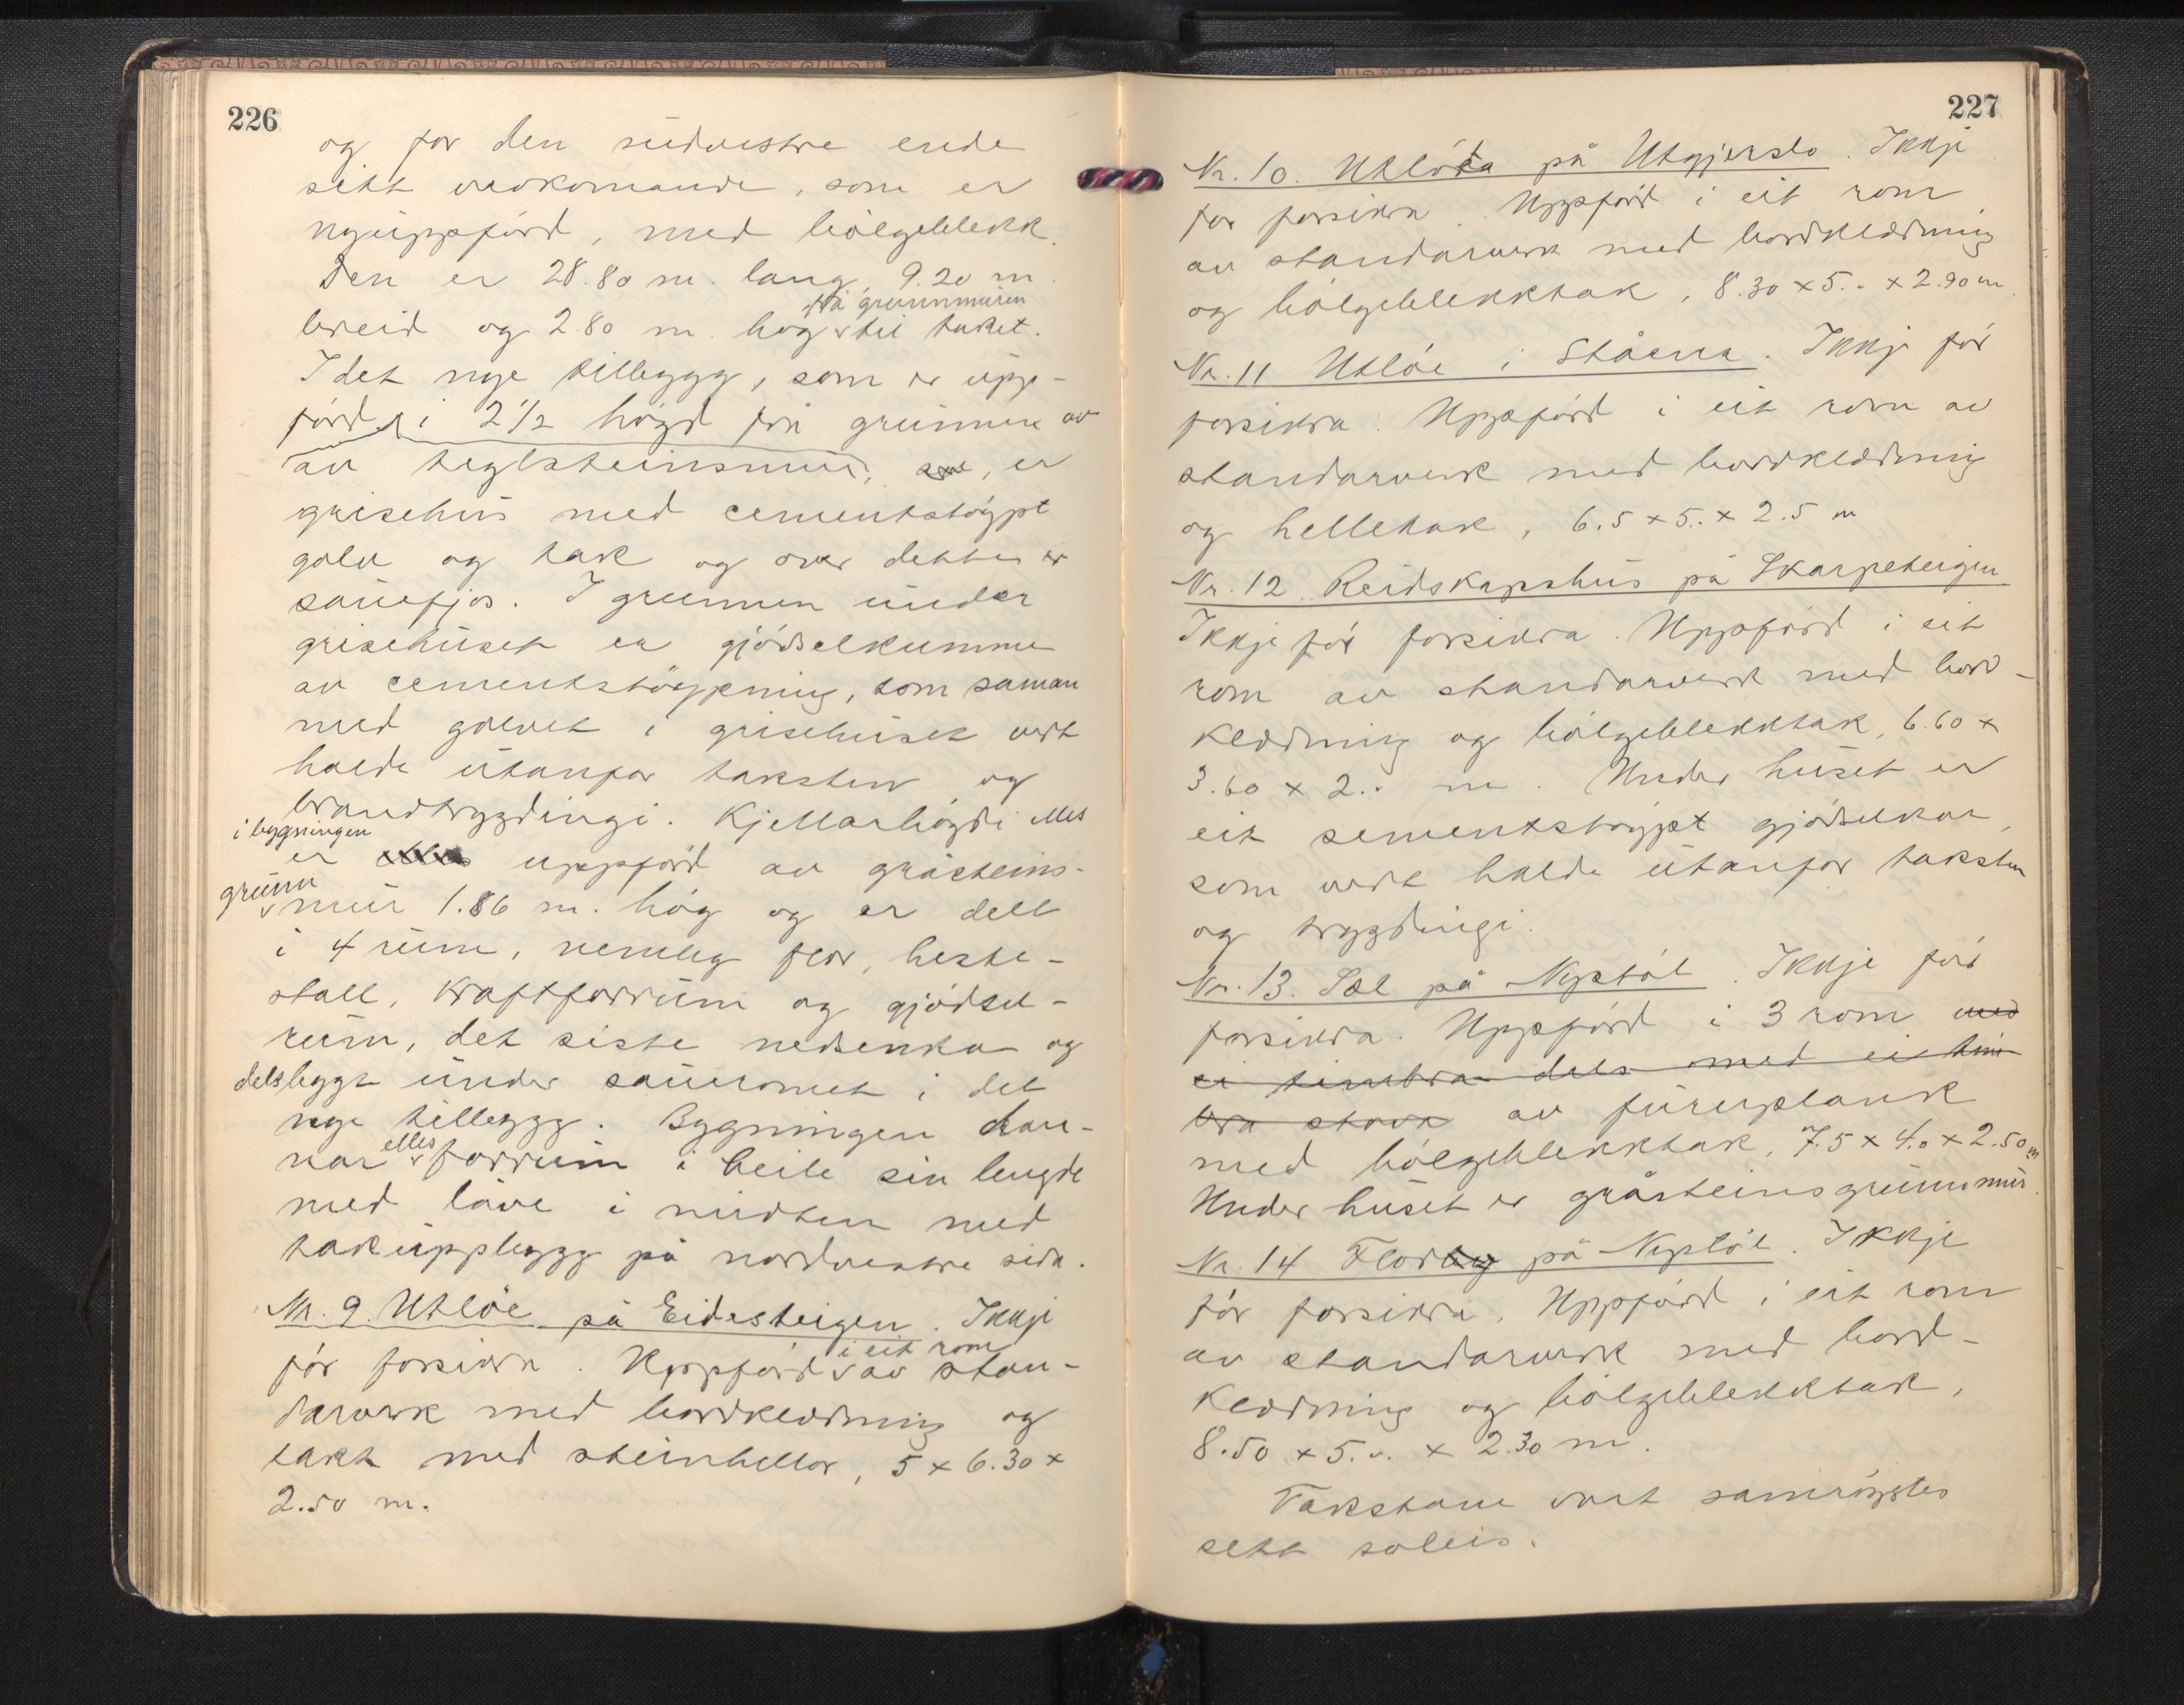 226
og for den sudvestre ende
sitt vedkomande, som er
nyuppførd, med bölgeblekk.
Den er 28.80 m. lang, 9.20 m
breid og 2.80 m. høg frå grunnmuren til taket.
I det nye tillegg, som er upp-
førd i 2 1/2 høgd frå grunnen av
av teglsteinsmur, er
grisehus med cementstøypt
golv og tak og over dette er
sauefjos. I grunnen under
grisehuset er gjødselkumme
av cementstøypning, som saman
med golvet i grisehuset vert
halde utanfor taksten og
brandtrygdingi. Kjellarhøgdi elles
i bygningen
er uppførd av gråsteins-
grunnmur 1.86 m. høg og er delt
i 4 rum, nemleg flor, heste-
stall, kraftforrum og gjødsel-
rum, det siste nedsenka og
dels lygt under sauromet i det
nye tillegg. Bygningen dan-
nar elles forrum i heile sin lengde
med låve i midten med
takupplegg på nordvestre sida.
Nr. 9. Utløe på Eidesteigen. Ikkje
før forsikra. Uppførd i eit rom av stan-
darverk med bordkledning og
takt med steinhellor, 5 x 6.30 x
2.50 m.
227
Nr. 10. Utløa på Utgjerslo. Ikkje
før forsikra. Uppførd i eit rom
av standarverk med bordkledning
og bölgeblekktak, 8.30 x 5.. x 2.90 m.
Nr. 11 Utløe i Ståena. Ikkje før
forsikra. Uppførd i eit rom av
standarverk med bordkledning
og helletak, 6.5 x 5.. x 2.5 m
Nr. 12. Reidskapshus på Skarpeteigen
Ikkje før forsikra. Uppførd i eit
rom av standarverk med bord-
kledning og bölgeblekktak, 6.60 x
3.60 x 2.. m. Under huset er
eit sementstøypt gjødselkar,
som vert halde utanfor taksten
og trygdingi.
Nr. 13. Sel på Nystøl. Ikkje før
forsikra. Uppførd i 3 rom med
ei timbra dels med ei tim-
bra stova av fureplank
med bölgeblekktak, 7.5 x 4.0 x 2.50 m
Under huset er gråsteinsgrunnmur.
Nr. 14 Flor på Nystøl. Ikkje
før forsikra. Uppførd i eit rom
av standarverk med bord-
kledning og bölgeblekktak,
8.50 x 5.0. x 2.30 m.
Takstane vart samrøystes
sett soleis: